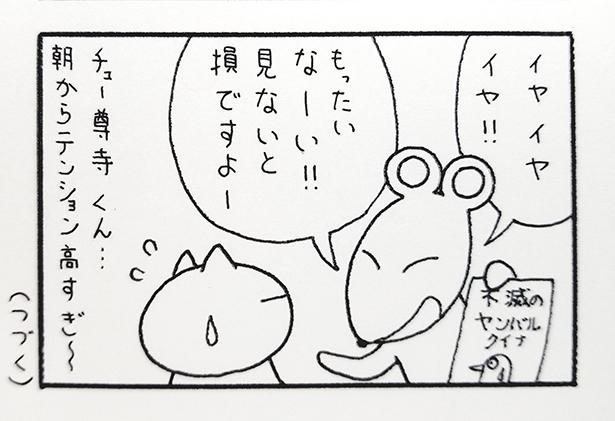 イヤイヤ
イヤ!!
もったい
なーい!!
見ないと
損ですよー
不滅の
ヤンバル
クイナ
チュー尊寺くん…
朝からテンション高すぎ〜
(つづく)